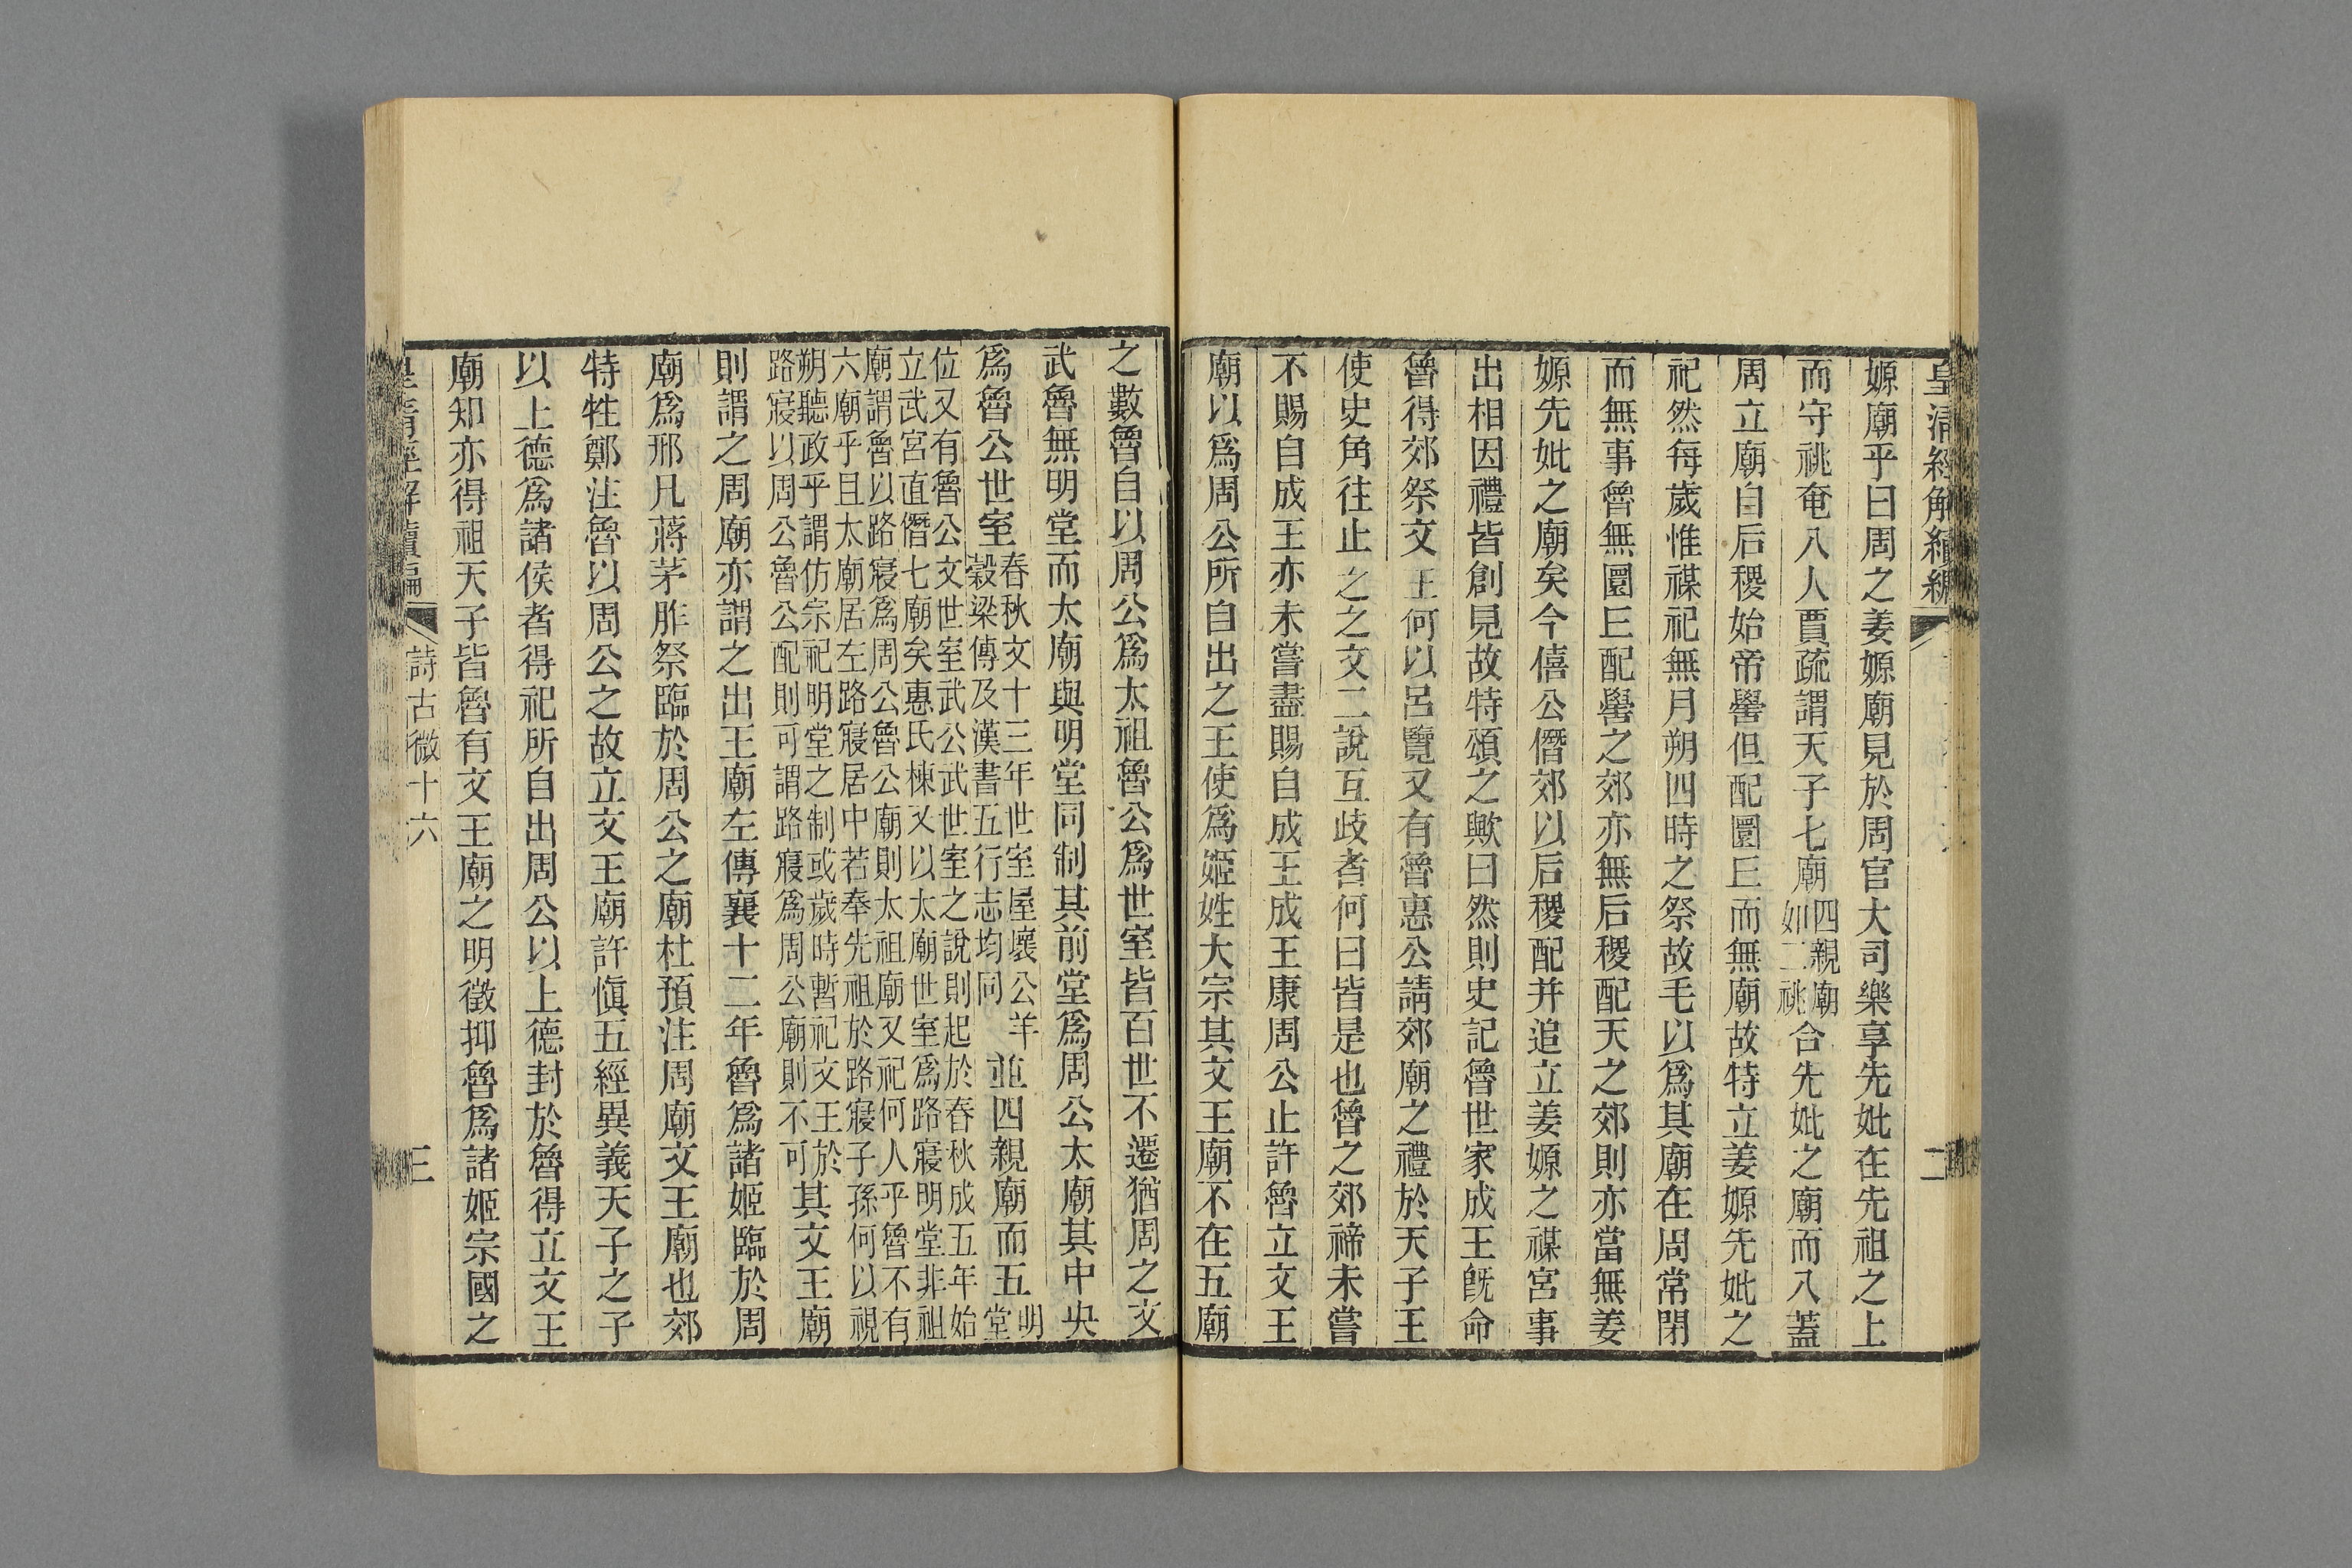 皇清經解續編
二
嫄廟乎曰周之姜嫄廟見於周官大司樂享先妣在先祖之上
而守祧奄八人賈疏謂天子七廟四親廟如二祧合先妣之廟而八蓋
周立廟自后稷始帝嚳但配圜丘而無廟故特立姜嫄先妣之
祀然每歲惟禖祀無月朔四時之祭故毛以爲其廟在周常閉
而無事魯無圜丘配嚳之郊亦無后稷配天之郊則亦當無姜
嫄先妣之廟矣今僖公僭郊以后稷配并追立姜嫄之禖宮事
出相因禮皆創見故特頌之歟曰然則史記魯世家成王旣命
魯得郊祭文王何以呂覽又有魯惠公請郊廟之禮於天子王
使史角往止之之文二說互歧者何曰皆是也魯之郊禘未嘗
不賜自成王亦未嘗盡賜自成王成王康周公止許魯立文王
廟以爲周公所自出之王使爲姬姓大宗其文王廟不在五廟
之數魯自以周公爲太祖魯公爲世室皆百世不遷猶周之文
武魯無明堂而太廟與明堂同制其前堂爲周公太廟其中央
爲魯公世室春秋文十三年世室屋壞公羊穀梁傳及漢書五行志均同並四親廟而五明堂
位又有魯公文世室武公武世室之說則起於春秋成五年始
立武宮直僭七廟矣惠氏棟又以太廟世室爲路寢明堂非祖
廟謂魯以路寢爲周公魯公廟則太祖廟又祀何人乎魯不有
六廟乎且太廟居左路寢居中若奉先祖於路寢子孫何以視
朔聽政乎謂仿宗祀明堂之制或歲時暫祀文王於
路寢以周公魯公配則可謂路寢爲周公廟則不可其文王廟
則謂之周廟亦謂之出王廟左傳襄十二年魯爲諸姬臨於周
廟爲邢凡蔣茅胙祭臨於周公之廟杜預注周廟文王廟也郊
特牲鄭注魯以周公之故立文王廟許愼五經異義天子之子
以上德爲諸侯者得祀所自出周公以上德封於魯得立文王
廟知亦得祖天子皆魯有文王廟之明徵抑魯爲諸姬宗國之
皇清經解續編
詩古微十六
三